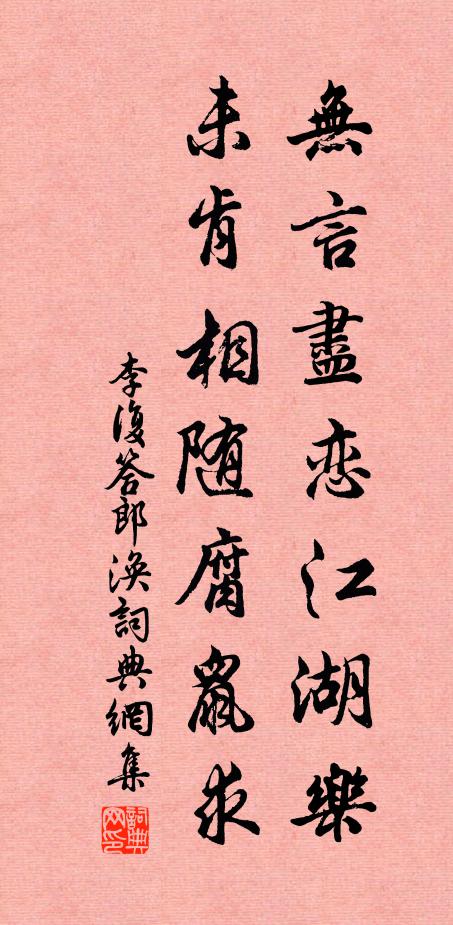 無言盡恋江湖樂
未肯相随腐鼠求
李復答郎渙詞典網集
詞典
网印